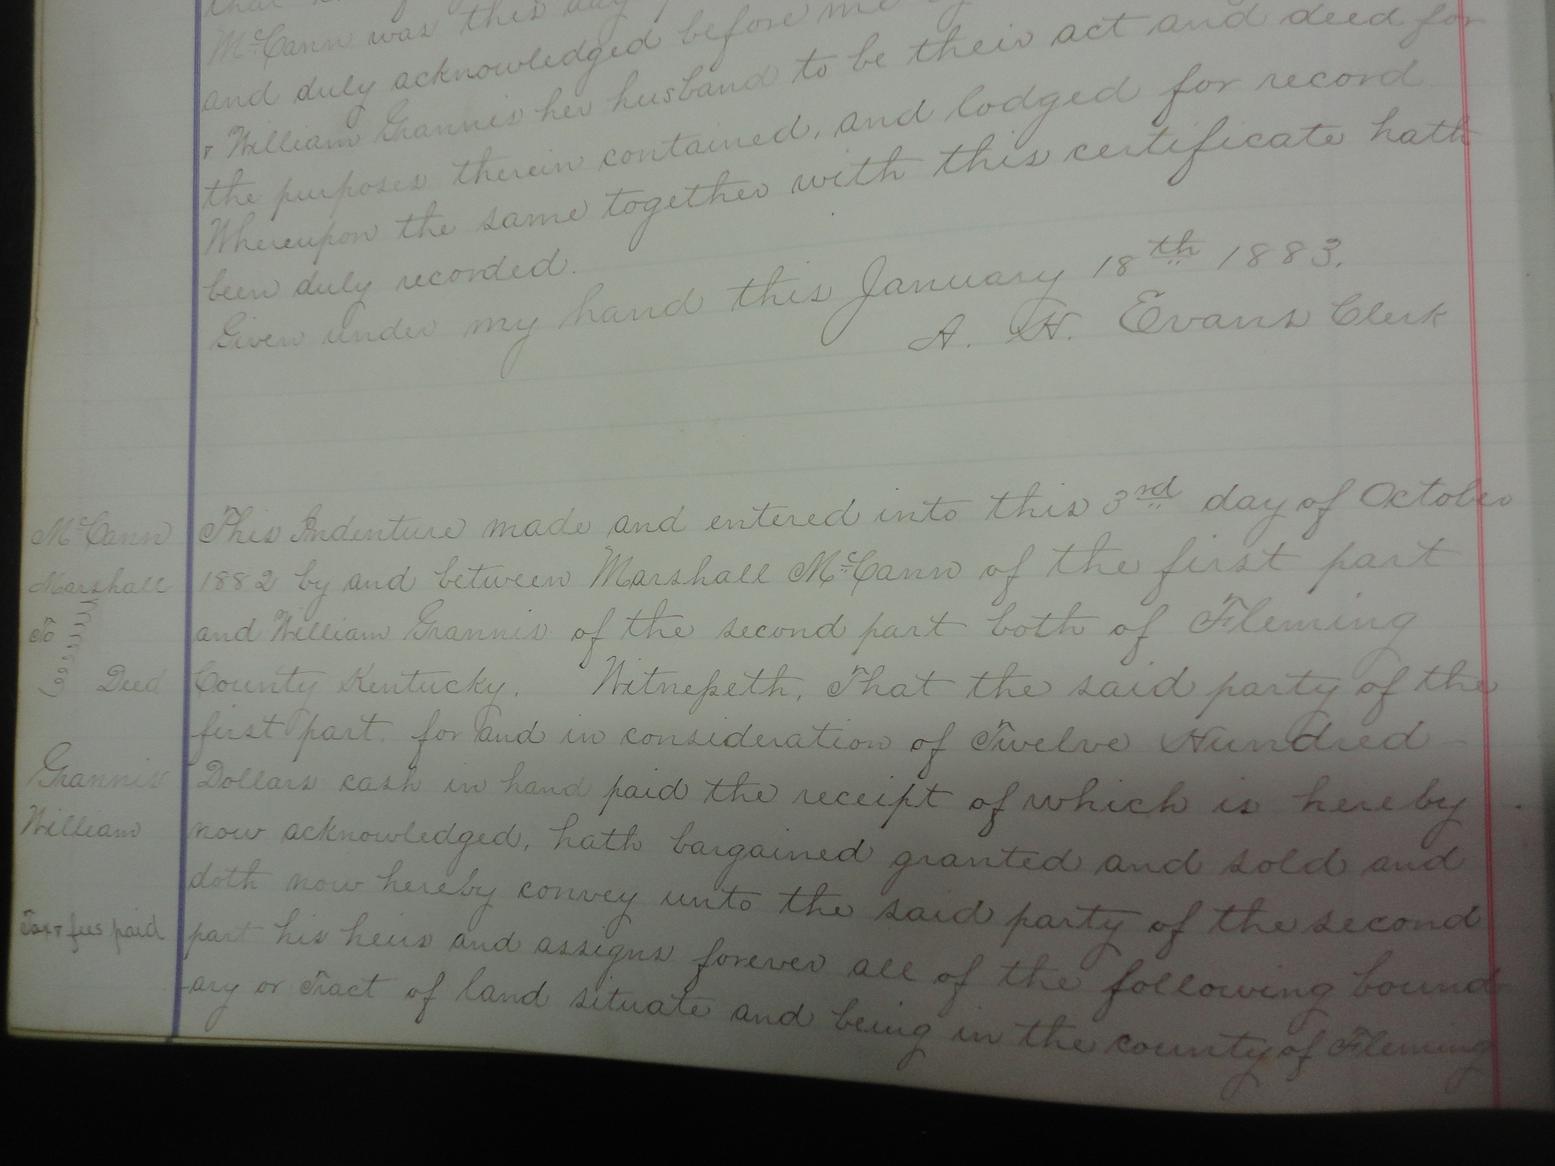 McCann was this day
and duly acknowledged before me
& William Grannis her husband to be their act and deed for
the purposes therein contained, and lodged for record
Whereupon the same together with this certificate hath
been duly recorded.
Given under my hand this January 18th 1883.
A. H. Evans Clerk
McCann
Marshall
To
Deed
Grannis
William
Tax & fees paid
This Indenture made and entered into this 3rd day of October
1882 by and between Marshall McCann of the first part
and William Grannis of the second part both of Fleming
County Kentucky. Witnesseth, That the said party of the
first part for and in consideration of Twelve Hundred
Dollars cash in hand paid the receipt of which is hereby
now acknowledged, hath bargained granted and sold and
doth now hereby convey unto the said party of the second
part his heirs and assigns forever all of the following bound-
ary or Tract of land situate and being in the county of Fleming